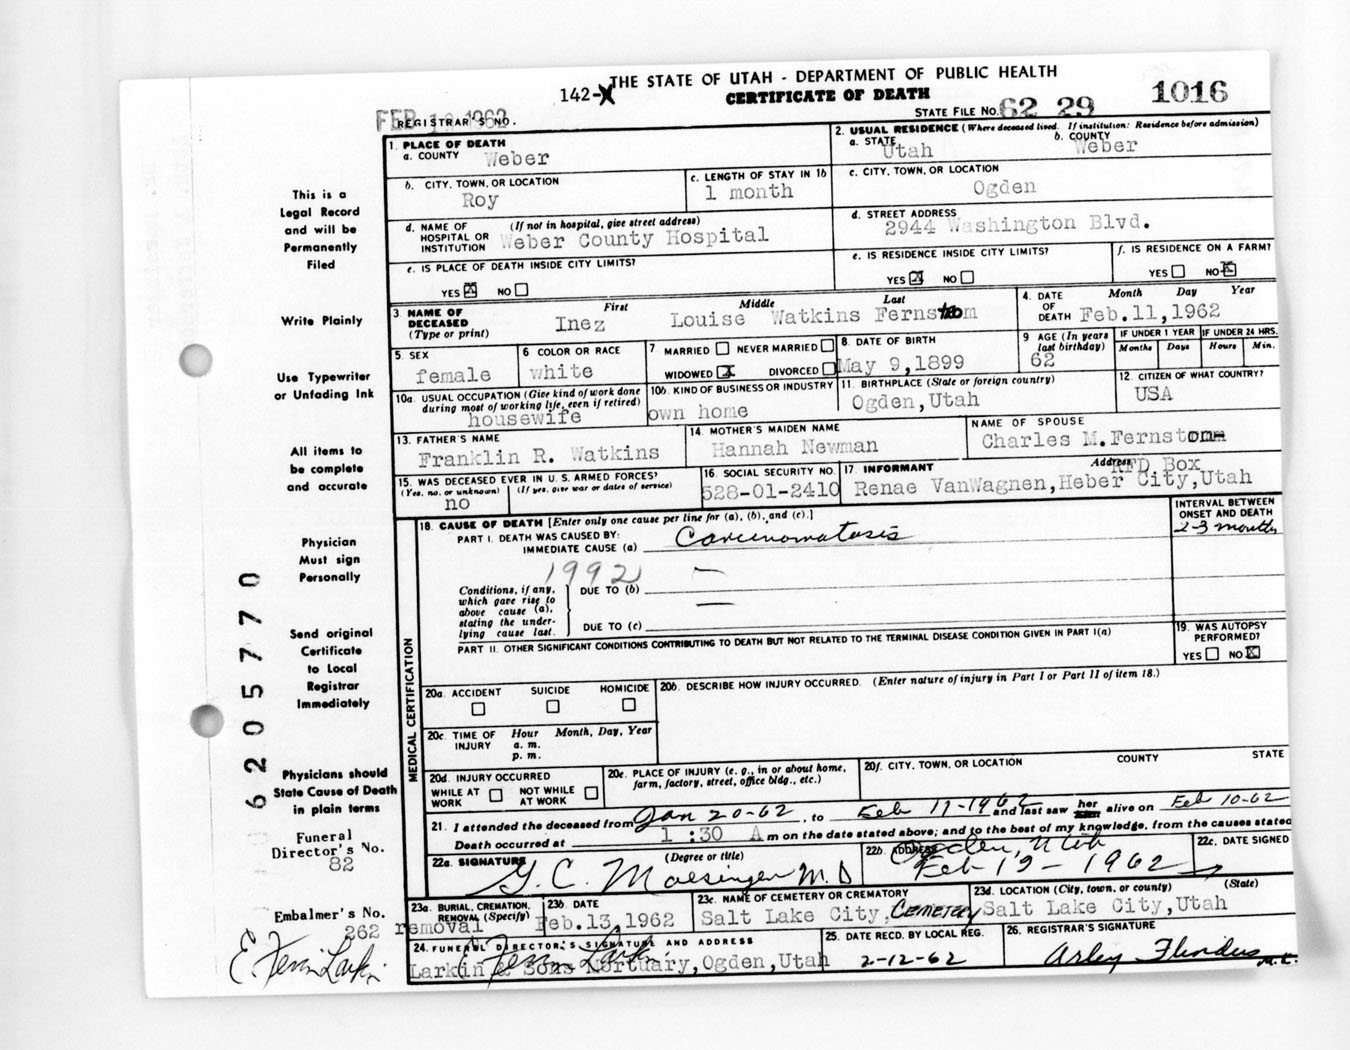 THE STATE OF UTAH - DEPARTMENT OF PUBLIC HEALTH
142-X
CERTIFICATE OF DEATH
1016
STATE FILE No. 62 29
FEB 1962
REGISTRAR'S NO.
1. PLACE OF DEATH
a. COUNTY Weber
2. USUAL RESIDENCE (Where deceased lived. If institution: Residence before admission)
a. STATE Utah b. COUNTY Weber
b. CITY, TOWN, OR LOCATION Roy
c. LENGTH OF STAY IN 1b 1 month
c. CITY, TOWN, OR LOCATION Ogden
d. NAME OF HOSPITAL OR INSTITUTION (If not in hospital, give street address) Weber County Hospital
d. STREET ADDRESS 2944 Washington Blvd.
e. IS PLACE OF DEATH INSIDE CITY LIMITS?
YES X NO
e. IS RESIDENCE INSIDE CITY LIMITS?
YES X NO
f. IS RESIDENCE ON A FARM?
YES NO X
3. NAME OF DECEASED (Type or print)
First Middle Last
Inez Louise Watkins Fernstrom
4. DATE OF DEATH Month Day Year
Feb.11,1962
5. SEX female
6 COLOR OR RACE white
7 MARRIED NEVER MARRIED
WIDOWED X DIVORCED
8. DATE OF BIRTH May 9,1899
9 AGE (In years last birthday) 62
IF UNDER 1 YEAR Months Days
IF UNDER 24 HRS. Hours Min.
10a. USUAL OCCUPATION (Give kind of work done during most of working life, even if retired) housewife
10b. KIND OF BUSINESS OR INDUSTRY own home
11. BIRTHPLACE (State or foreign country) Ogden,Utah
12. CITIZEN OF WHAT COUNTRY? USA
13. FATHER'S NAME Franklin R. Watkins
14. MOTHER'S MAIDEN NAME Hannah Newman
NAME OF SPOUSE Charles M.Fernstomm
15. WAS DECEASED EVER IN U. S. ARMED FORCES?
(Yes, no, or unknown) (If yes, give war or dates of service)
no
16. SOCIAL SECURITY NO. 528-01-2410
17. INFORMANT Address RFD Box
Renae VanWagnen,Heber City,Utah
18. CAUSE OF DEATH [Enter only one cause per line for (a), (b), and (c).]
INTERVAL BETWEEN ONSET AND DEATH
PART I. DEATH WAS CAUSED BY:
IMMEDIATE CAUSE (a) Carcinomatosis 2-3 months
1992
Conditions, if any, which gave rise to above cause (a), stating the underlying cause last.
DUE TO (b) —
DUE TO (c) —
PART II. OTHER SIGNIFICANT CONDITIONS CONTRIBUTING TO DEATH BUT NOT RELATED TO THE TERMINAL DISEASE CONDITION GIVEN IN PART I(a)
19. WAS AUTOPSY PERFORMED?
YES NO X
MEDICAL CERTIFICATION
20a. ACCIDENT SUICIDE HOMICIDE
20b. DESCRIBE HOW INJURY OCCURRED. (Enter nature of injury in Part I or Part II of item 18.)
20c. TIME OF INJURY Hour Month, Day, Year
a. m.
p. m.
20d. INJURY OCCURRED
WHILE AT WORK NOT WHILE AT WORK
20e. PLACE OF INJURY (e. g., in or about home, farm, factory, street, office bldg., etc.)
20f. CITY, TOWN, OR LOCATION COUNTY STATE
21. I attended the deceased from Jan 20-62, to Feb 11-1962 and last saw her alive on Feb 10-62
Death occurred at 1:30 A m on the date stated above; and to the best of my knowledge, from the causes stated
22a. SIGNATURE (Degree or title)
G. C. M.D
22b. ADDRESS Ogden, Utah
22c. DATE SIGNED
Feb 12-1962
23a. BURIAL, CREMATION, REMOVAL (Specify) removal
23b. DATE Feb.13,1962
23c. NAME OF CEMETERY OR CREMATORY Salt Lake City, CEMETERY
23d. LOCATION (City, town, or county) (State) Salt Lake City,Utah
24. FUNERAL DIRECTOR'S SIGNATURE AND ADDRESS
E. Ferrin Larkin
Larkin & Sons Mortuary,Ogden,Utah
25. DATE RECD. BY LOCAL REG. 2-12-62
26. REGISTRAR'S SIGNATURE
Arley Flinders
This is a
Legal Record
and will be
Permanently
Filed
Write Plainly
Use Typewriter
or Unfading Ink
All items to
be complete
and accurate
Physician
Must sign
Personally
Send original
Certificate
to Local
Registrar
Immediately
Physicians should
State Cause of Death
in plain terms
Funeral
Director's No.
82
Embalmer's No.
262
E. Ferrin Larkin
6205770